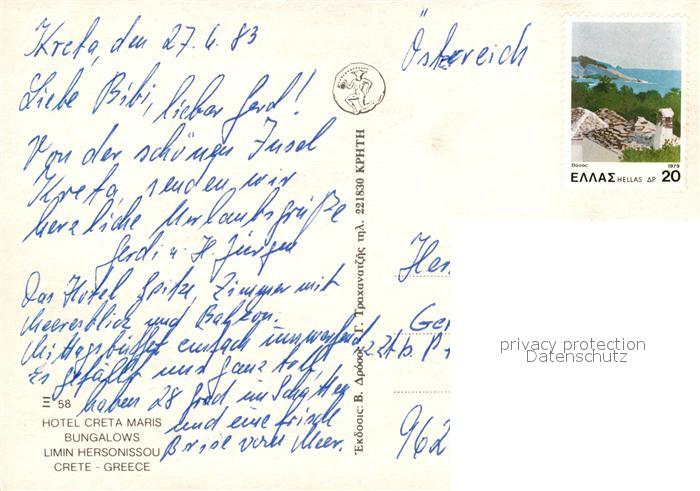 Kreta, den 27.4.83
Liebe Bibi, lieber Gerd!
Von der schönen Insel
Kreta senden wir
herzliche Urlaubsgrüße
Gerdi u. H. Jürgen
Das Hotel Spitze, Zimmer mit
Meeresblick und Balkon.
Mittagsbüffet einfach umwerfend
Es gefällt uns ganz toll,
haben 28 Grad im Schatten
und eine frische
Brise vom Meer.
Ξ 58
HOTEL CRETA MARIS
BUNGALOWS
LIMIN HERSONISSOU
CRETE - GREECE
Ἐκδοσις: Β. Δρόσος - Γ. Τραχανατζῆς τηλ. 221830 ΚΡΗΤΗ
Österreich
Θασος 1979
ΕΛΛΑΣ HELLAS ΔΡ. 20
Her
Ger
z.Zt. b. P
962
privacy protection
Datenschutz